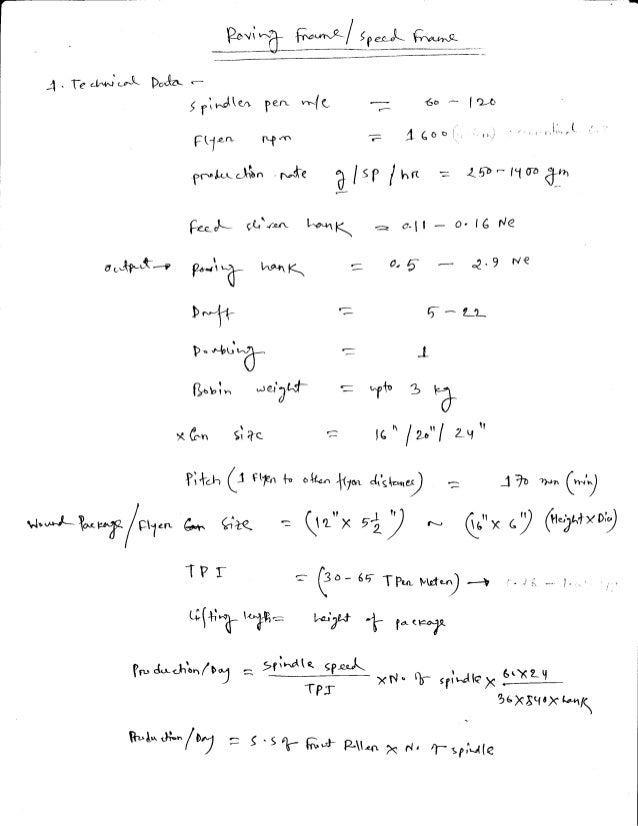 Roving Frame / Speed Frame
1. Technical Data -
Spindles per m/c = 60 - 120
Flyer rpm = 1600
production rate g/SP/hr = 250-1400 gm
Feed sliver hank = 0.11 - 0.16 Ne
output → Roving hank = 0.5 - 2.9 Ne
Draft = 5 - 22
Doubling = 1
Bobin weight = upto 3 kg
x Can size = 16"/20"/24"
Pitch (1 Flyer to other flyer distance) = 170 mm (min)
Wound Package/Flyer size = (12" x 5½") ~ (16" x 6") (Height x Dia)
TPI = (30-65 T Per Meter) →
Lifting length = height of package
Production/Day = Spindle speed / TPI x No of spindle x 60x24 / 36x840x hank
Production/Day = S.S of Front Roller x No of spindle